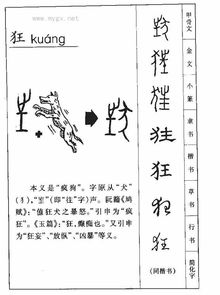 www.mygx.net
狂 kuáng
本义是“疯狗”。字形从“犬”
(犭),“㞷”(即“往”字)声。阮籍《鸠
赋》:“值狂犬之暴怒。”引申为“疯
狂”。《玉篇》:“狂,癫痴也。”又引申
为“狂妄”、“放纵”、“凶暴”等义。
狂
狂
狂
狂
(同楷书)
甲骨文
金文
小篆
隶书
楷书
草书
行书
简化字